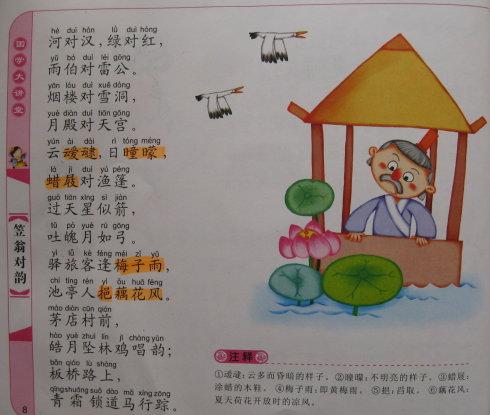 国学大讲堂
笠翁对韵
hé duì hàn lǜ duì hóng
河对汉,绿对红,
yǔ bó duì léi gōng
雨伯对雷公。
yān lóu duì xuě dòng
烟楼对雪洞,
yuè diàn duì tiān gōng
月殿对天宫。
yún ài dài rì tóng méng
云叆叇,日曈曚,
là jī duì yú péng
蜡屐对渔蓬。
guò tiān xīng sì jiàn
过天星似箭,
tǔ pò yuè rú gōng
吐魄月如弓。
yì lǚ kè féng méi zǐ yǔ
驿旅客逢梅子雨,
chí tíng rén yì ǒu huā fēng
池亭人挹藕花风。
máo diàn cūn qián
茅店村前,
hào yuè zhuì lín jī chàng yùn
皓月坠林鸡唱韵;
bǎn qiáo lù shàng
板桥路上,
qīng shuāng suǒ dào mǎ xíng zōng
青霜锁道马行踪。
注释
①叆叇:云多而昏暗的样子。②曈曚:不明亮的样子。③蜡屐:
涂蜡的木鞋。④梅子雨:即黄梅雨。⑤挹:舀取。⑥藕花风:
夏天荷花开放时的凉风。
8